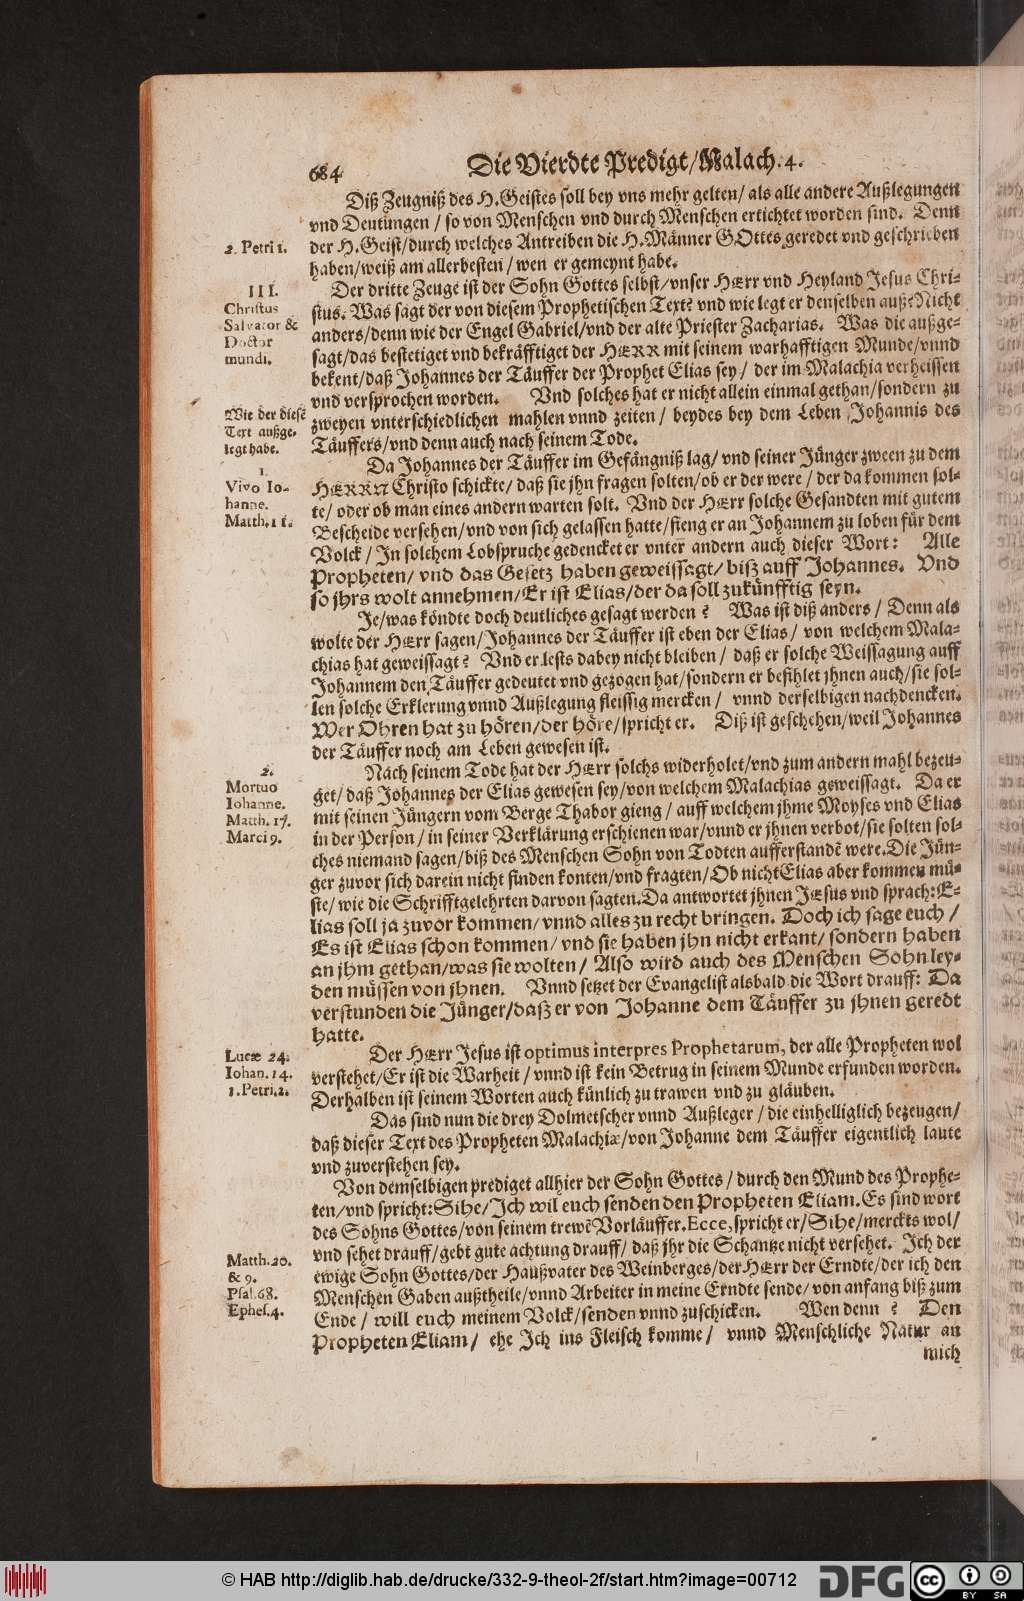 684
Die Vierdte Predigt/Malach. 4.
Diß Zeugniß des H. Geistes soll bey vns mehr gelten/ als alle andere Außlegungen
vnd Deutungen / so von Menschen vnd durch Menschen ertichtet worden sind. Denn
2. Petri 1.
der H. Geist/durch welches Antreiben die H. Männer GOttes geredet vnd geschrieben
haben/weiß am allerbesten / wen er gemeynt habe.
III.
Christus
Salvator &
Doctor
mundi.
Der dritte Zeuge ist der Sohn Gottes selbst/vnser HErr vnd Heyland Jesus Chri-
stus. Was sagt der von diesem Prophetischen Text? vnd wie legt er denselben auß? Nicht
anders/denn wie der Engel Gabriel/vnd der alte Priester Zacharias. Was die außge-
sagt/das bestetiget vnd bekräfftiget der HERR mit seinem warhafftigen Munde/vnnd
bekent/daß Johannes der Täuffer der Prophet Elias sey / der im Malachia verheissen
vnd versprochen worden. Vnd solches hat er nicht allein einmal gethan/sondern zu
Wie der diesẽ
Text außge-
legt habe.
zweyen vnterschiedlichen mahlen vnnd zeiten / beydes bey dem Leben Johannis des
Täuffers/vnd denn auch nach seinem Tode.
1.
Vivo Io-
hanne.
Matth. 11.
Da Johannes der Täuffer im Gefängniß lag/ vnd seiner Jünger zween zu dem
HERRN Christo schickte/ daß sie jhn fragen solten/ob er der were / der da kommen sol-
te/ oder ob man eines andern warten solt. Vnd der HErr solche Gesandten mit gutem
Bescheide versehen/vnd von sich gelassen hatte/fieng er an Johannem zu loben für dem
Volck / In solchem Lobspruche gedencket er vnter andern auch dieser Wort: Alle
Propheten/ vnd das Gesetz haben geweissagt/ bisz auff Johannes. Vnd
so jhrs wolt annehmen/Er ist Elias/der da soll zukünfftig seyn.
Je/was köndte doch deutliches gesagt werden? Was ist diß anders / Denn als
wolte der HErr sagen/Johannes der Täuffer ist eben der Elias / von welchem Mala-
chias hat geweissagt? Vnd er lests dabey nicht bleiben / daß er solche Weissagung auff
Johannem den Täuffer gedeutet vnd gezogen hat/sondern er befihlet jhnen auch/sie sol-
len solche Erklerung vnnd Außlegung fleissig mercken / vnnd derselbigen nachdencken.
Wer Ohren hat zu hören/der höre/spricht er. Diß ist geschehen/weil Johannes
der Täuffer noch am Leben gewesen ist.
2.
Mortuo
Iohanne.
Matth. 17.
Marci 9.
Nach seinem Tode hat der HErr solchs widerholet/vnd zum andern mahl bezeu-
get/ daß Johannes der Elias gewesen sey/von welchem Malachias geweissagt. Da er
mit seinen Jüngern vom Berge Thabor gieng / auff welchem jhme Moyses vnd Elias
in der Person / in seiner Verklärung erschienen war/vnnd er jhnen verbot/sie solten sol-
ches niemand sagen/biß des Menschen Sohn von Todten aufferstandẽ were. Die Jün-
ger zuvor sich darein nicht finden konten/vnd fragten/Ob nicht Elias aber kommen mü-
ste/ wie die Schrifftgelehrten darvon sagten. Da antwortet jhnen JEsus vnd sprach: E-
lias soll ja zuvor kommen/ vnnd alles zu recht bringen. Doch ich sage euch /
Es ist Elias schon kommen/ vnd sie haben jhn nicht erkant/ sondern haben
an jhm gethan/was sie wolten / Also wird auch des Menschen Sohn ley-
den müssen von jhnen. Vnnd setzet der Evangelist alsbald die Wort drauff: Da
verstunden die Jünger/dasz er von Johanne dem Täuffer zu jhnen geredt
hatte.
Lucæ 24.
Iohan. 14.
1. Petri. 2.
Der HErr Jesus ist optimus interpres Prophetarum, der alle Propheten wol
verstehet/Er ist die Warheit / vnnd ist kein Betrug in seinem Munde erfunden worden.
Derhalben ist seinem Worten auch künlich zu trawen vnd zu gläuben.
Das sind nun die drey Dolmetscher vnnd Außleger / die einhelliglich bezeugen/
daß dieser Text des Propheten Malachiæ/von Johanne dem Täuffer eigentlich laute
vnd zuverstehen sey.
Von demselbigen prediget allhier der Sohn Gottes / durch den Mund des Prophe-
ten/vnd spricht: Sihe/Ich wil euch senden den Propheten Eliam. Es sind wort
des Sohns Gottes/von seinem trewẽ Vorläuffer. Ecce, spricht er/Sihe/merckts wol/
vnd sehet drauff/gebt gute achtung drauff/ daß jhr die Schantze nicht versehet. Ich der
Matth. 20.
& 9.
Psal. 68.
Ephes. 4.
ewige Sohn Gottes/der Haußvater des Weinberges/der HErr der Erndte/der ich den
Menschen Gaben außtheile/vnnd Arbeiter in meine Erndte sende/ von anfang biß zum
Ende / will euch meinem Volck/senden vnnd zuschicken. Wen denn? Den
Propheten Eliam/ ehe Ich ins Fleisch komme/ vnnd Menschliche Natur an
mich
© HAB http://diglib.hab.de/drucke/332-9-theol-2f/start.htm?image=00712
DFG
cc
BY SA